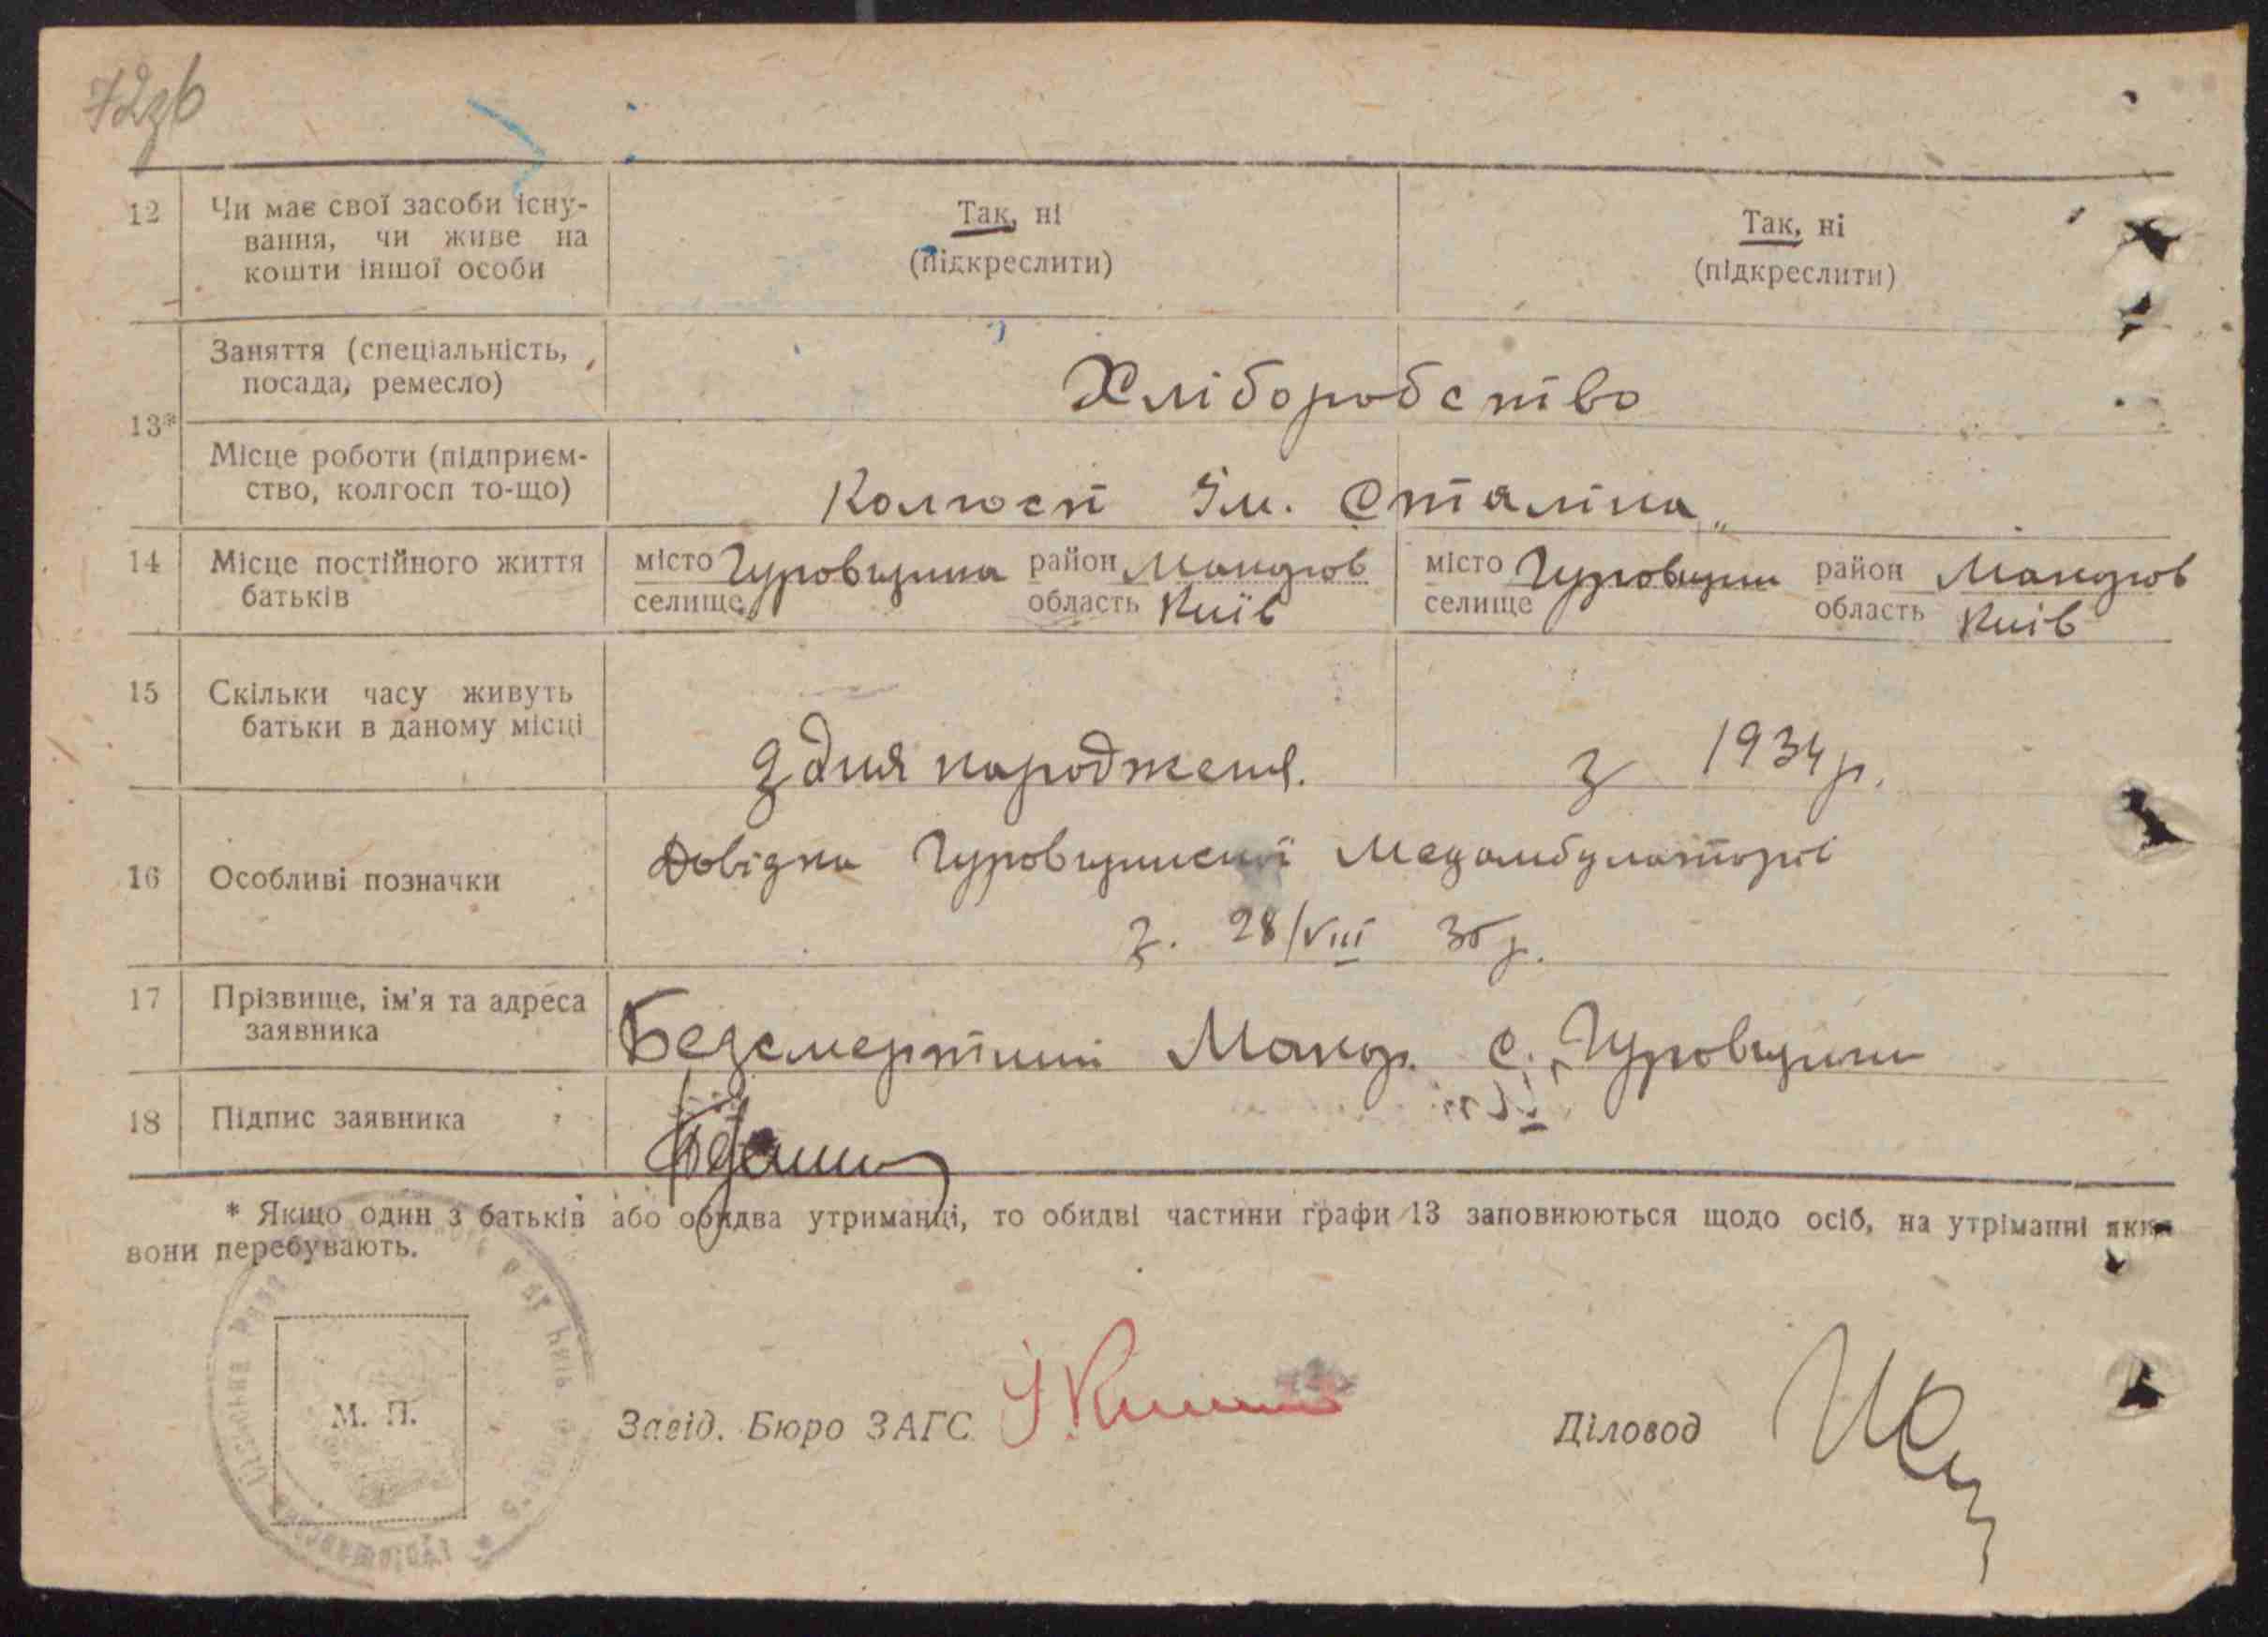 72зв
12 Чи має свої засоби існу-
вання, чи живе на
кошти іншої особи
Так, ні
(підкреслити)
Так, ні
(підкреслити)
13*
Заняття (спеціальність,
посада, ремесло)
Хліборобство
Місце роботи (підприєм-
ство, колгосп то-що)
Колгосп Ім. Сталіна„
14 Місце постійного життя
батьків
місто Гуровщина район Макаров
селище область Київ
місто Гуровщини район Макаров
селище область Київ
15 Скільки часу живуть
батьки в даному місці
З дня народженя.
з 1934 р.
16 Особливі позначки
Довідка Гуровщинської Медамбулаторії
з. 28/VIII 35 р.
17 Прізвище, ім'я та адреса
заявника
Безсмертний Макар. с. Гуровщини
18 Підпис заявника
* Якщо один з батьків або обидва утриманці, то обидві частини графи 13 заповнюються щодо осіб, на утріманні яких
вони перебувають.
М. П.
Завід. Бюро ЗАГС
Діловод